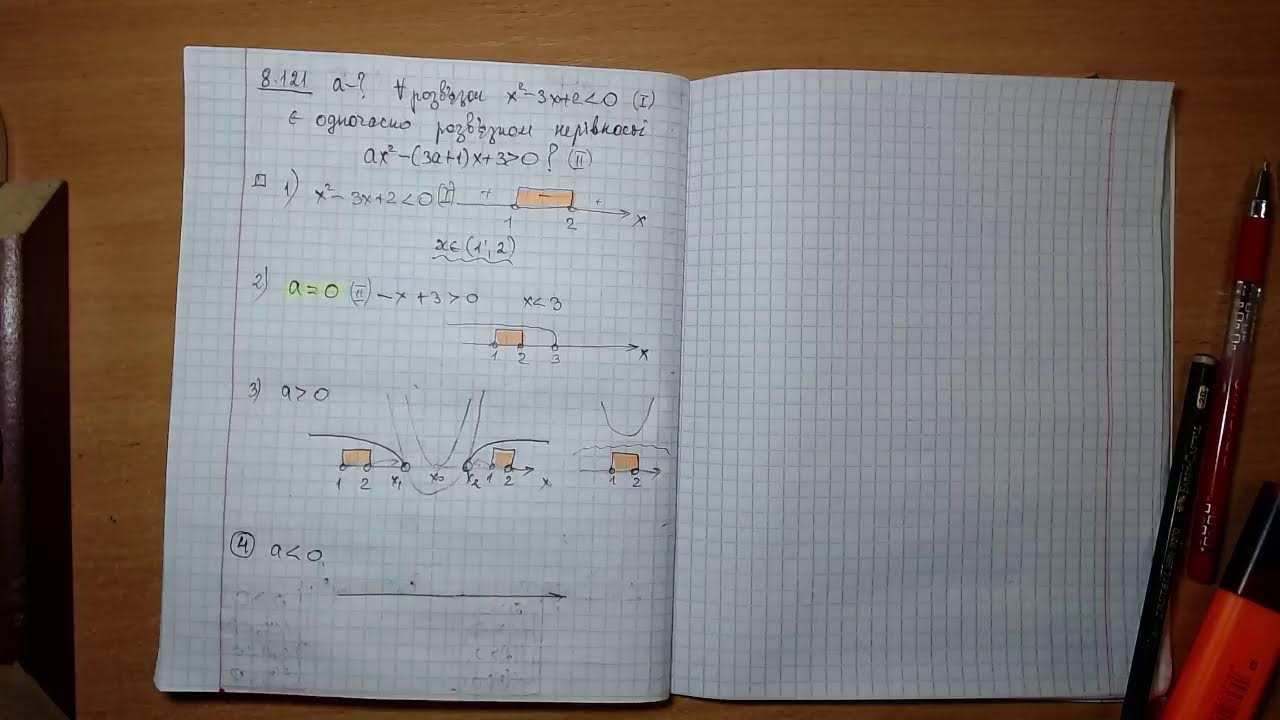 8.121 a-? ∀ розв'язок x²-3x+2<0 (I)
є одночасно розв'язком нерівності
ax²-(3a+1)x+3>0? (II)
1) x²-3x+2<0 (I) + - +
1 2 x
x∈(1;2)
2) a=0 (II) -x+3>0 x<3
1 2 3 x
3) a>0
1 2 x₁ x₀ x₂ 1 2 x 1 2
4 a<0